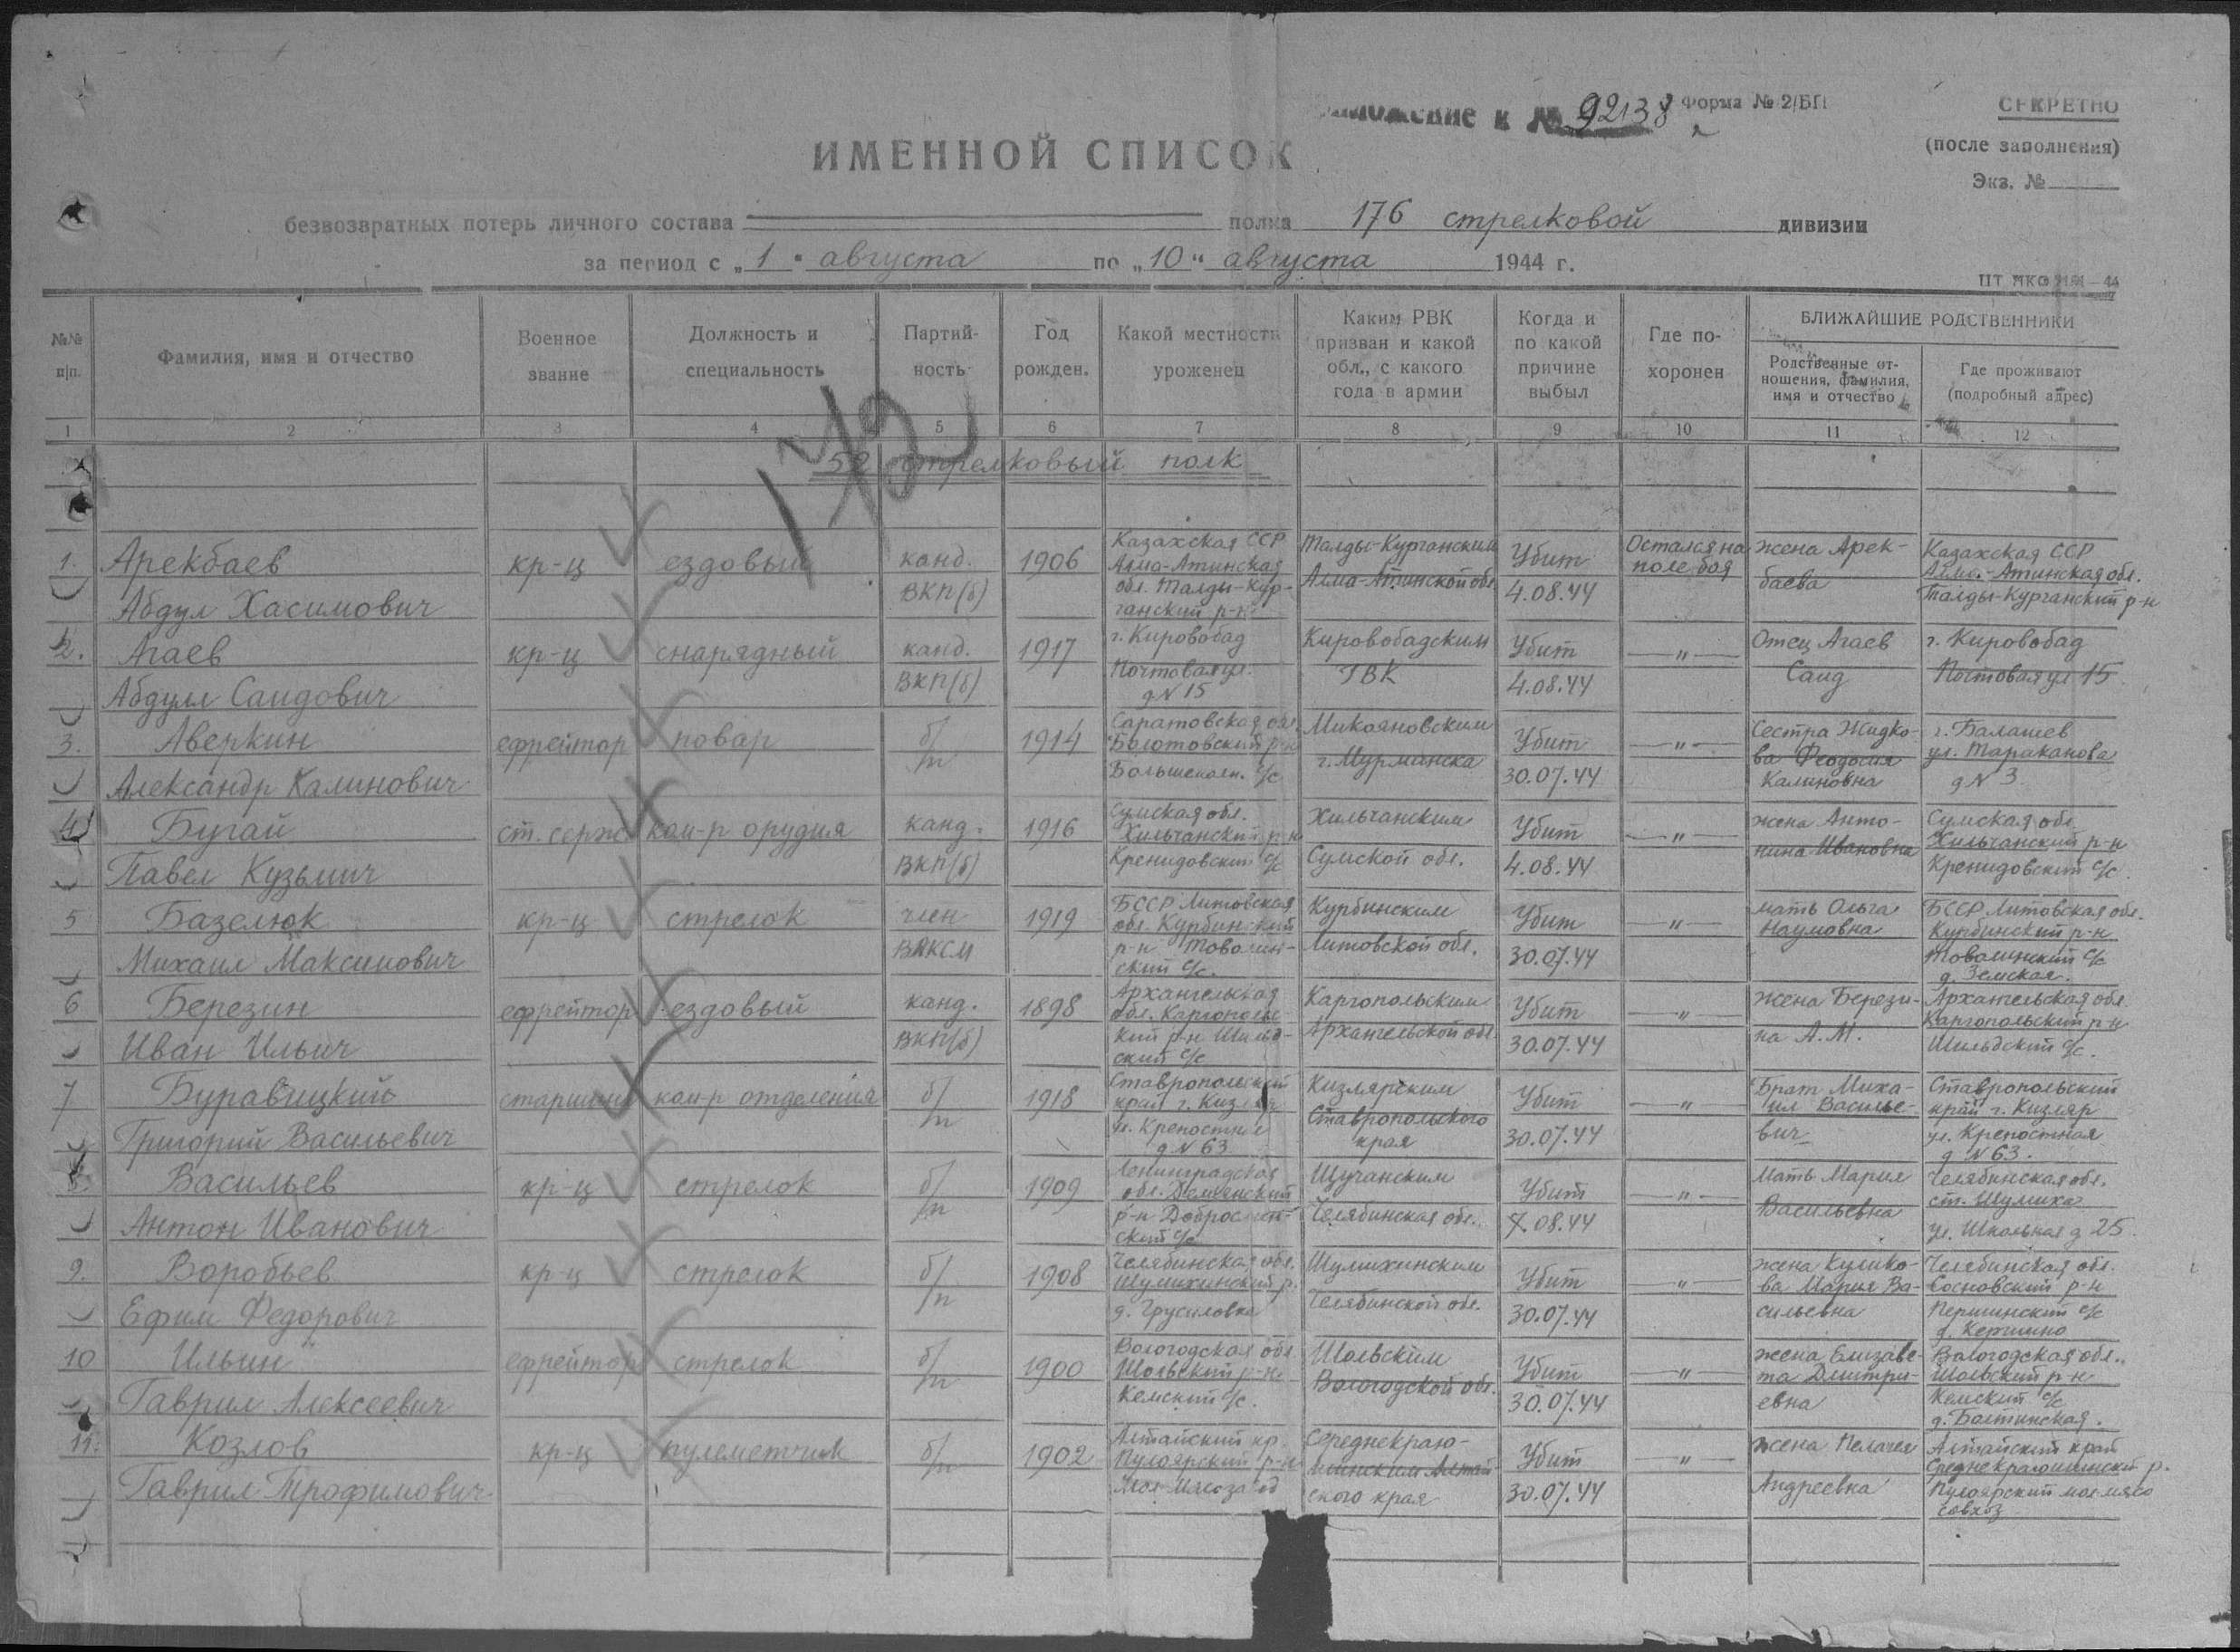 Приложение к № 92138
Форма № 2/БП
СЕКРЕТНО
(после заполнения)
Экз. №
ИМЕННОЙ СПИСОК
безвозвратных потерь личного состава полка 176 стрелковой дивизии
за период с „1" августа по „10" августа 1944 г.
№№ п|п.
Фамилия, имя и отчество
Военное звание
Должность и специальность
Партий-
ность
Год рожден.
Какой местности уроженец
Каким РВК
призван и какой
обл., с какого
года в армии
Когда и
по какой
причине
выбыл
Где по-
хоронен
БЛИЖАЙШИЕ РОДСТВЕННИКИ
Родственные от-
ношения, фамилия,
имя и отчество
Где проживают
(подробный адрес)
1 2 3 4 5 6 7 8 9 10 11 12
52 стрелковый полк
1. Арекбаев
Абдул Хасимович
кр-ц
ездовый
канд.
ВКП(б)
1906
Казахская ССР
Алма-Атинская
обл. Талды-Кур-
ганский р-н
Талды-Курганским
Алма-Атинской обл.
Убит
4.08.44
Остался на
поле боя
жена Арек-
баева
Казахская ССР
Алма-Атинская обл.
Талды-Курганский р-н
2. Агаев
Абдулл Саидович
кр-ц
снарядный
канд.
ВКП(б)
1917
г. Кировобад
Почтовая ул.
д N 15
Кировобадским
ГВК
Убит
4.08.44
— " —
Отец Агаев
Саид
г. Кировобад
Почтовая ул 15
3. Аверкин
Александр Калинович
ефрейтор
повар
б/п
1914
Саратовская обл.
р-н
с/с
Микояновским
г. Мурманска
Убит
30.07.44
— " —
Сестра Жидко-
ва Феодосия
Калиновна
г. Балашев
ул. Тараканова
д N 3
4. Бугай
Павел Кузьмич
ст. серж
ком-р орудия
канд.
ВКП(б)
1916
Сумская обл.
Хильчанский р-н
Кренидовский с/с
Хильчанским
Сумской обл.
Убит
4.08.44
— " —
жена Анто-
нина Ивановна
Сумская обл.
Хильчанский р-н
Кренидовский с/с.
5 Базелюк
Михаил Максимович
кр-ц
стрелок
член
ВЛКСМ
1919
БССР Литовская
обл. Курбинский
р-н Товалин-
ский с/с.
Курбинским
Литовской обл.
Убит
30.07.44
— " —
мать Ольга
Наумовна
БССР Литовская обл.
Курбинский р-н
Товалинский с/с
д. Земская.
6 Березин
Иван Ильич
ефрейтор
ездовый
канд.
ВКП(б)
1898
Архангельская
обл. Каргополь-
кий р-н Шильд-
ский с/с
Каргопольским
Архангельской обл.
Убит
30.07.44
— " —
жена Берези-
на А.М.
Архангельская обл.
Каргопольский р-н
Шильдский с/с.
7 Буравицкий
Григорий Васильевич
старшина
ком-р отделения
б/п
1918
Ставропольский
край г. Кизляр
ул. Крепостная
д N 63
Кизлярским
Ставропольского
края
Убит
30.07.44
— " —
Брат Миха-
ил Василье-
вич
Ставропольский
край г. Кизляр
ул. Крепостная
д N 63.
8. Васильев
Антон Иванович
кр-ц
стрелок
б/п
1909
Ленинградская
обл. Демянский
р-н
ский с/с
Щучанским
Челябинская обл.
Убит
7.08.44
— " —
Мать Мария
Васильевна
Челябинская обл.
ст. Шумиха
ул. Школьная д 25.
9. Воробьев
Ефим Федорович
кр-ц
стрелок
б/п
1908
Челябинская обл.
Шумихинский р.
д. Трусиловка
Шумихинским
Челябинской обл.
Убит
30.07.44
— " —
жена Кулико-
ва Мария Ва-
сильевна
Челябинская обл.
Сосновский р-н
Першинский с/с
10 Ильин
Гаврил Алексеевич
ефрейтор
стрелок
б/п
1900
Вологодская обл.
Шольский р-н
Кемский с/с.
Шольским
Вологодской обл.
Убит
30.07.44
— " —
жена Елизаве-
та Дмитри-
евна
Вологодская обл.
Шольский р-н
Кемский с/с
11. Козлов
Гаврил Трофимович
кр-ц
пулеметчик
б/п
1902
Алтайский кр.
р-н
Алтай-
ского края
Убит
30.07.44
— " —
жена Пелагея
Андреевна
Алтайский край
совхоз